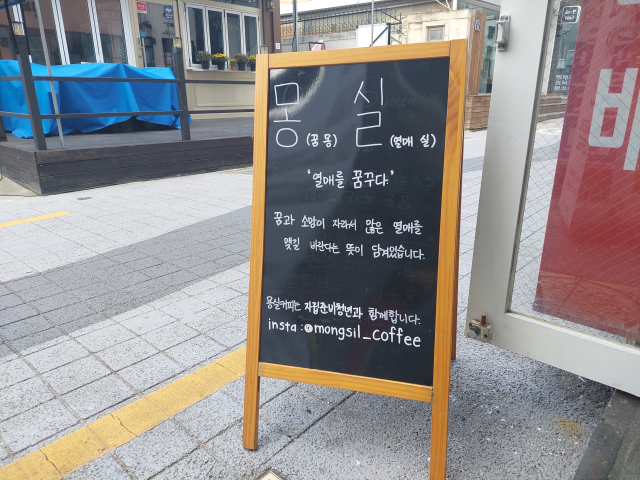 몽 실
(꿈 몽) (열매 실)
'열매를 꿈꾸다.'
꿈과 소망이 자라서 많은 열매를
맺길 바란다는 뜻이 담겨있습니다.
몽실커피는 자립준비청년과 함께합니다.
insta : @mongsil_coffee